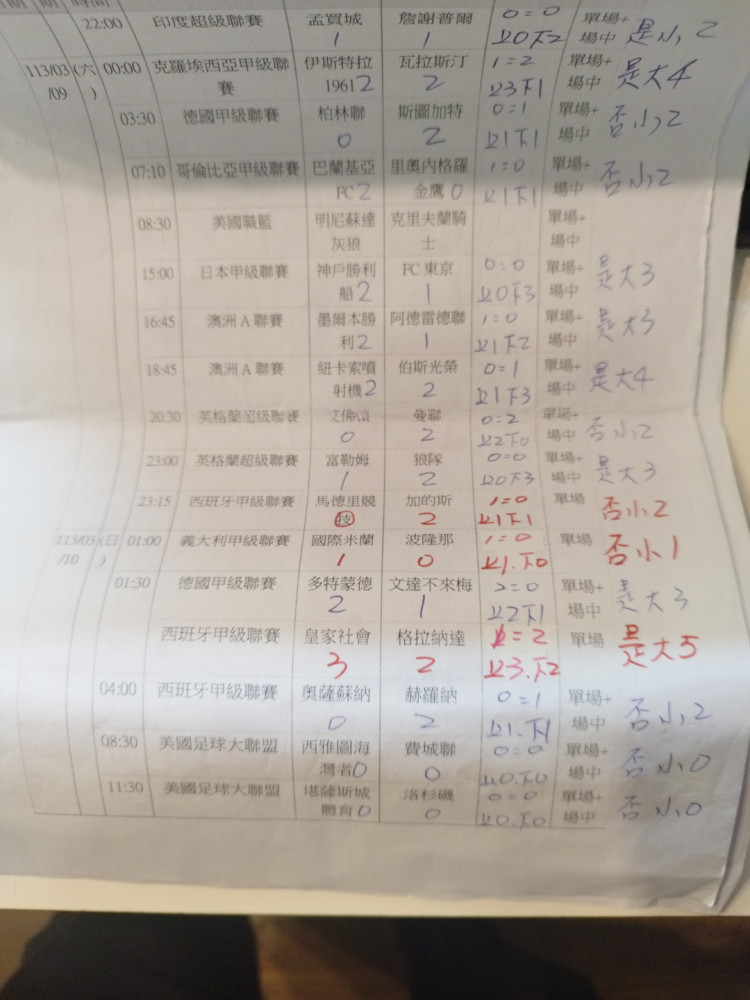 時間
22:00 印度超級聯賽 孟買城 詹謝普爾 0=0 單場+
1 1 上0下2 場中 是小2
113/03 (六 00:00 克羅埃西亞甲級聯 伊斯特拉 瓦拉斯汀 1=2 單場+
/09 ) 賽 1961 2 2 上3下1 場中 是大4
03:30 德國甲級聯賽 柏林聯 斯圖加特 0:1 單場+
0 2 上1下1 場中 否小2
07:10 哥倫比亞甲級聯賽 巴蘭基亞 里奧內格羅 1=0 單場+
FC 2 金鷹 0 上1下1 場中 否小2
08:30 美國職籃 明尼蘇達 克里夫蘭騎 單場+
灰狼 士 場中
15:00 日本甲級聯賽 神戶勝利 FC 東京 0:0 單場+
船 2 1 上0下3 場中 是大3
16:45 澳洲 A 聯賽 墨爾本勝 阿德雷德聯 1=0 單場+
利 2 1 上1下2 場中 是大3
18:45 澳洲 A 聯賽 紐卡索噴 伯斯光榮 0=1 單場+
射機 2 2 上1下3 場中 是大4
20:30 英格蘭超級聯賽 艾佛頓 曼聯 0:2 單場+
0 2 上2下0 場中 否小2
23:00 英格蘭超級聯賽 富勒姆 狼隊 0=0 單場+
1 2 上0下3 場中 是大3
23:15 西班牙甲級聯賽 馬德里競 加的斯 1=0 單場 否小2
技 2 上1下1
113/03 (日 01:00 義大利甲級聯賽 國際米蘭 波隆那 1=0 單場 否小1
/10 ) 1 0 上1.下0
01:30 德國甲級聯賽 多特蒙德 文達不來梅 2=0 單場+
2 1 上2下1 場中 是大3
西班牙甲級聯賽 皇家社會 格拉納達 =2 單場 是大5
3 2 上3.下2
04:00 西班牙甲級聯賽 奧薩蘇納 赫羅納 0=1 單場+
0 2 上1.下1 場中 否小2
08:30 美國足球大聯盟 西雅圖海 費城聯 0=0 單場+
灣者 0 0 上0.下0 場中 否小0
11:30 美國足球大聯盟 堪薩斯城 洛杉磯 0=0 單場+
體育 0 0 上0.下0 場中 否小0